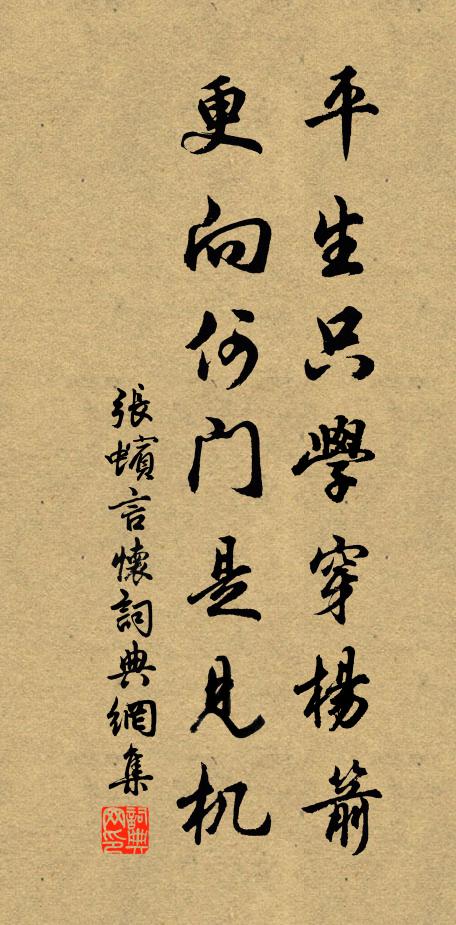 平生只學穿楊箭
更向何门是见机
張蠙言懷詞典網集
詞典网印